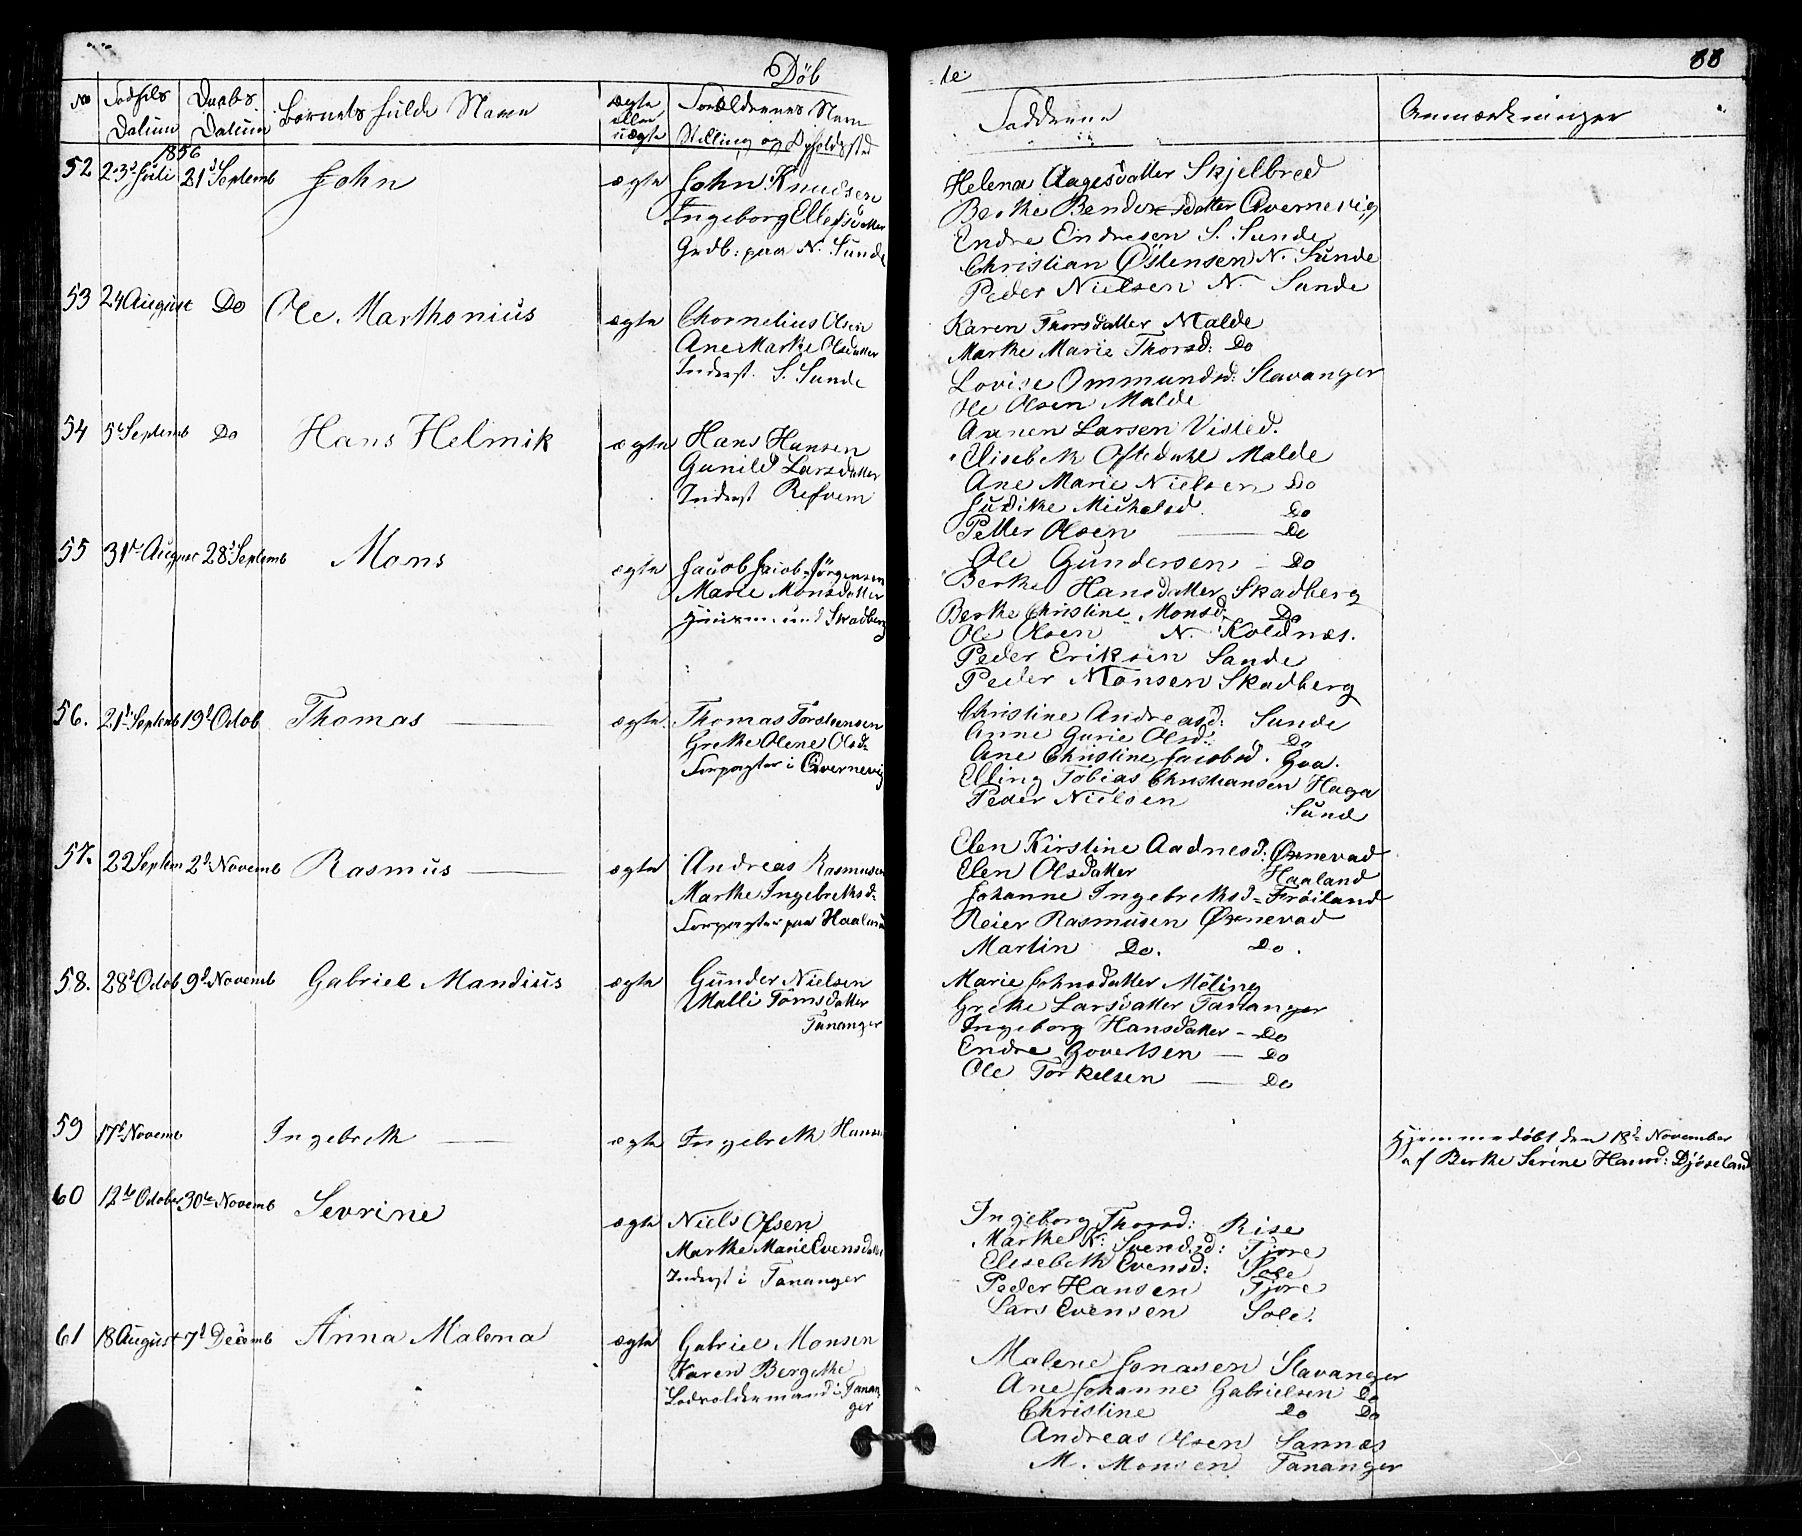 Døb
te
88
No Fødsels Datum Daabs Datum Barnets fulde Navn ægte eller uægte Forældrenes Navn Stilling og Opholdssted
Faddrene Anmærkninger
1856
52 23d Juli 21d Septemb John ægte John Knudsen
Ingeborg Ellefsdatter
Grdb: paa N. Sunde
Helena Aagesdatter Skjelbred
Berthe Bendixsdatter Qvernevig
Endre Endresen S. Sunde
Christian Østensen N. Sunde
Peder Nielsen N. Sunde
53 24 August Do Ole Marthonius ægte Chornelius Olsen
Ane Marthe Olsdatter
Inderst. S. Sunde
Karen Thorsdatter Malde
Marthe Marie Thorsd: Do
Lovise Ommundsd: Stavanger
Ole Olsen Malde
Annen Larsen Visted.
54 5t Septemb Do Hans Helmik ægte Hans Hansen
Gunild Larsdatter
Inderst Refvem
Elisebeth Oftedahl Malde
Ane Marie Nielsen Do
Judithe Michelsd. Do
Petter Olsen — Do
Ole Gundersen — Do
55 31te August 28d Septemb Mons ægte Jacob Jacob. Jørgensen
Marie Monsdatter
Skadberg
Berthe Hansdatter Skadberg
Berthe Christine Monsd. Do
Ole Olsen N. Koldnæs.
Peder Eriksen Sande
Peder Monsen Skadberg
56. 21d Septemb 19d Octob Thomas — ægte Thomas Torstensen
Grethe Olene Olsd.
Forpagter i Qvernevig
Christine Andreasd: Sunde
Anne Gurie Olsd: Do
Ane Christine Jacobsd. Goa.
Elling Tobias Christiansen Haga
Peder Nielsen Sund
57. 22 Septem 2d Novemb Rasmus — ægte Andreas Rasmusen
Marthe Ingebrethsd.
Forpagter paa Haaland
Elen Kirstine Aadnesd: Ørnevad
Elen Olsdatter Haaland
Johanne Ingebrethsd. Frøiland
Reier Rasmusen Ørnevad
Martin Do. Do.
58. 28d Octob 9d Novemb Gabriel Mandius ægte Gunder Nielsen
Malli Tømsdatter
Tananger
Marie Johnsdatter Meling
Grethe Larsdatter Tananger
Ingeborg Hansdatter — Do
Endre Govertsen — Do
Ole Torkelsen — Do
59 17d Novemb Ingebreth — ægte Ingebreth Hansen
Hjemmedøbt den 18d November
af Berthe Serine Hansd: Djøseland
60 12te October 30te Novemb Sevrine ægte Niels Olsen
Marthe Marie Evensdatter
Inderst i Tananger
Ingeborg Thorsd: Rise
Marthe K: Svendsd: Tjore
Elisebeth Evensd: Sole
Peder Hansen Tjore
Lars Evensen Sole.
61 18 August 7d Decemb Anna Malena ægte Gabriel Monsen
Karen Bergethe
Lodsoldermand i Tananger
Malene Jonasen Stavanger
Ane Johanne Gabrielsen Do
Christine Do Do
Andreas Olsen Sannæs
M. Monsen Tananger